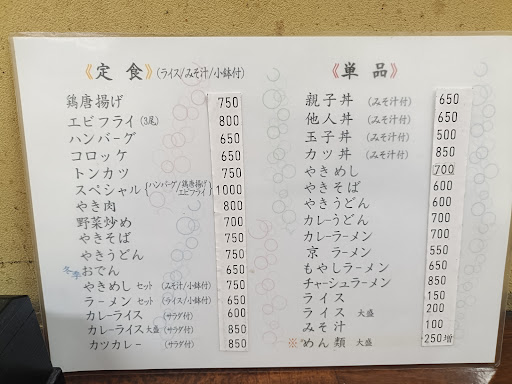 《定食》(ライス/みそ汁/小鉢付)
鶏唐揚げ 750
エビフライ(3尾) 800
ハンバーグ 650
コロッケ 650
トンカツ 750
スペシャル{ハンバーグ/鶏唐揚げ エビフライ} 1000
やき肉 800
野菜炒め 700
やきそば 750
やきうどん 750
冬季 おでん 650
やきめし セット (みそ汁/小鉢付) 750
ラーメン セット (ライス/小鉢付) 650
カレーライス (サラダ付) 650
カレーライス 大盛 (サラダ付) 850
カツカレー (サラダ付) 850
《単品》
親子丼 (みそ汁付) 650
他人丼 (みそ汁付) 650
玉子丼 (みそ汁付) 500
カツ丼 (みそ汁付) 850
やきめし 700
やきそば 600
やきうどん 600
カレーうどん 700
カレーラーメン 700
京 ラーメン 550
もやしラーメン 650
チャーシュラーメン 850
ライス 150
ライス 大盛 200
みそ汁 100
※めん類 大盛 250増